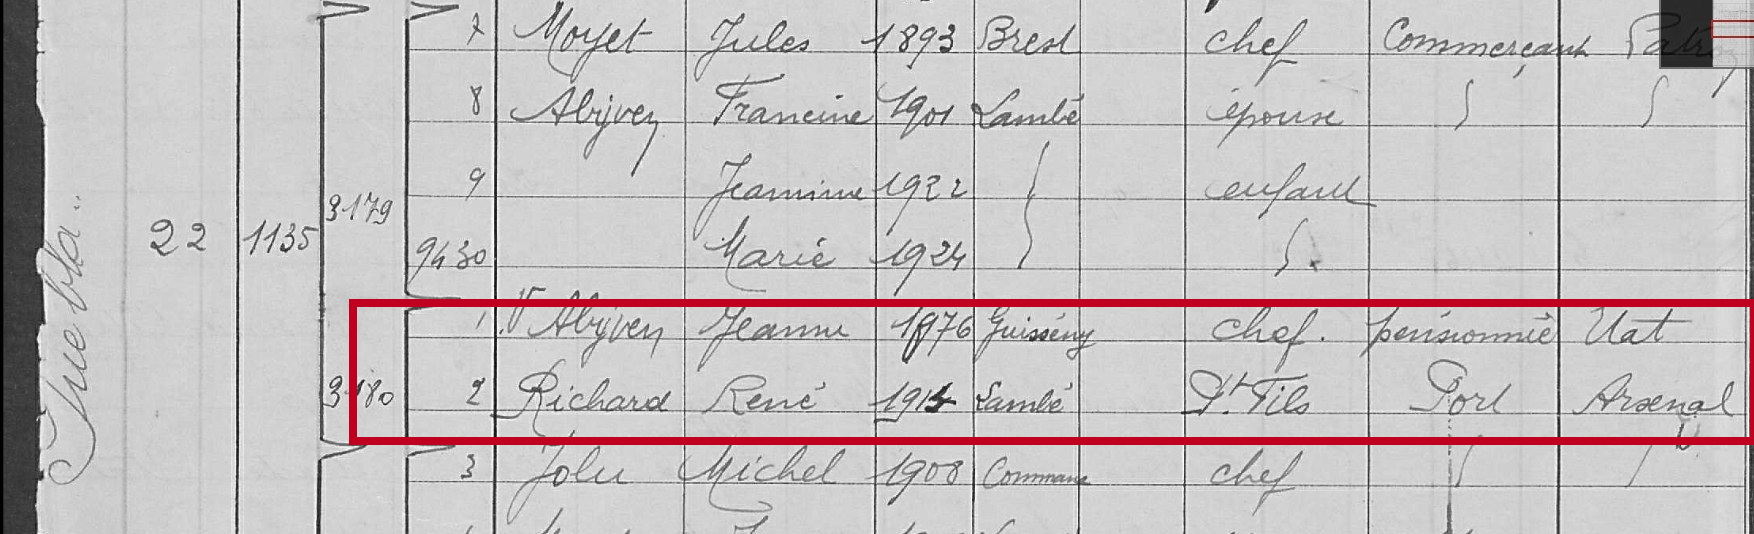 7 Moyet Jules 1893 Brest chef Commerçant
8 Abijven Francine 1901 Lambé épouse
9 Jeannine 1922 enfant
22 1135 3179 9430 Marie 1924
1 Vᵛᵉ Abijven Jeanne 1876 Guissény chef. pensionnée Etat
3180 2 Richard René 1914 Lambé Pᵗ Fils Port Arsenal
3 Michel 1908 Commana chef